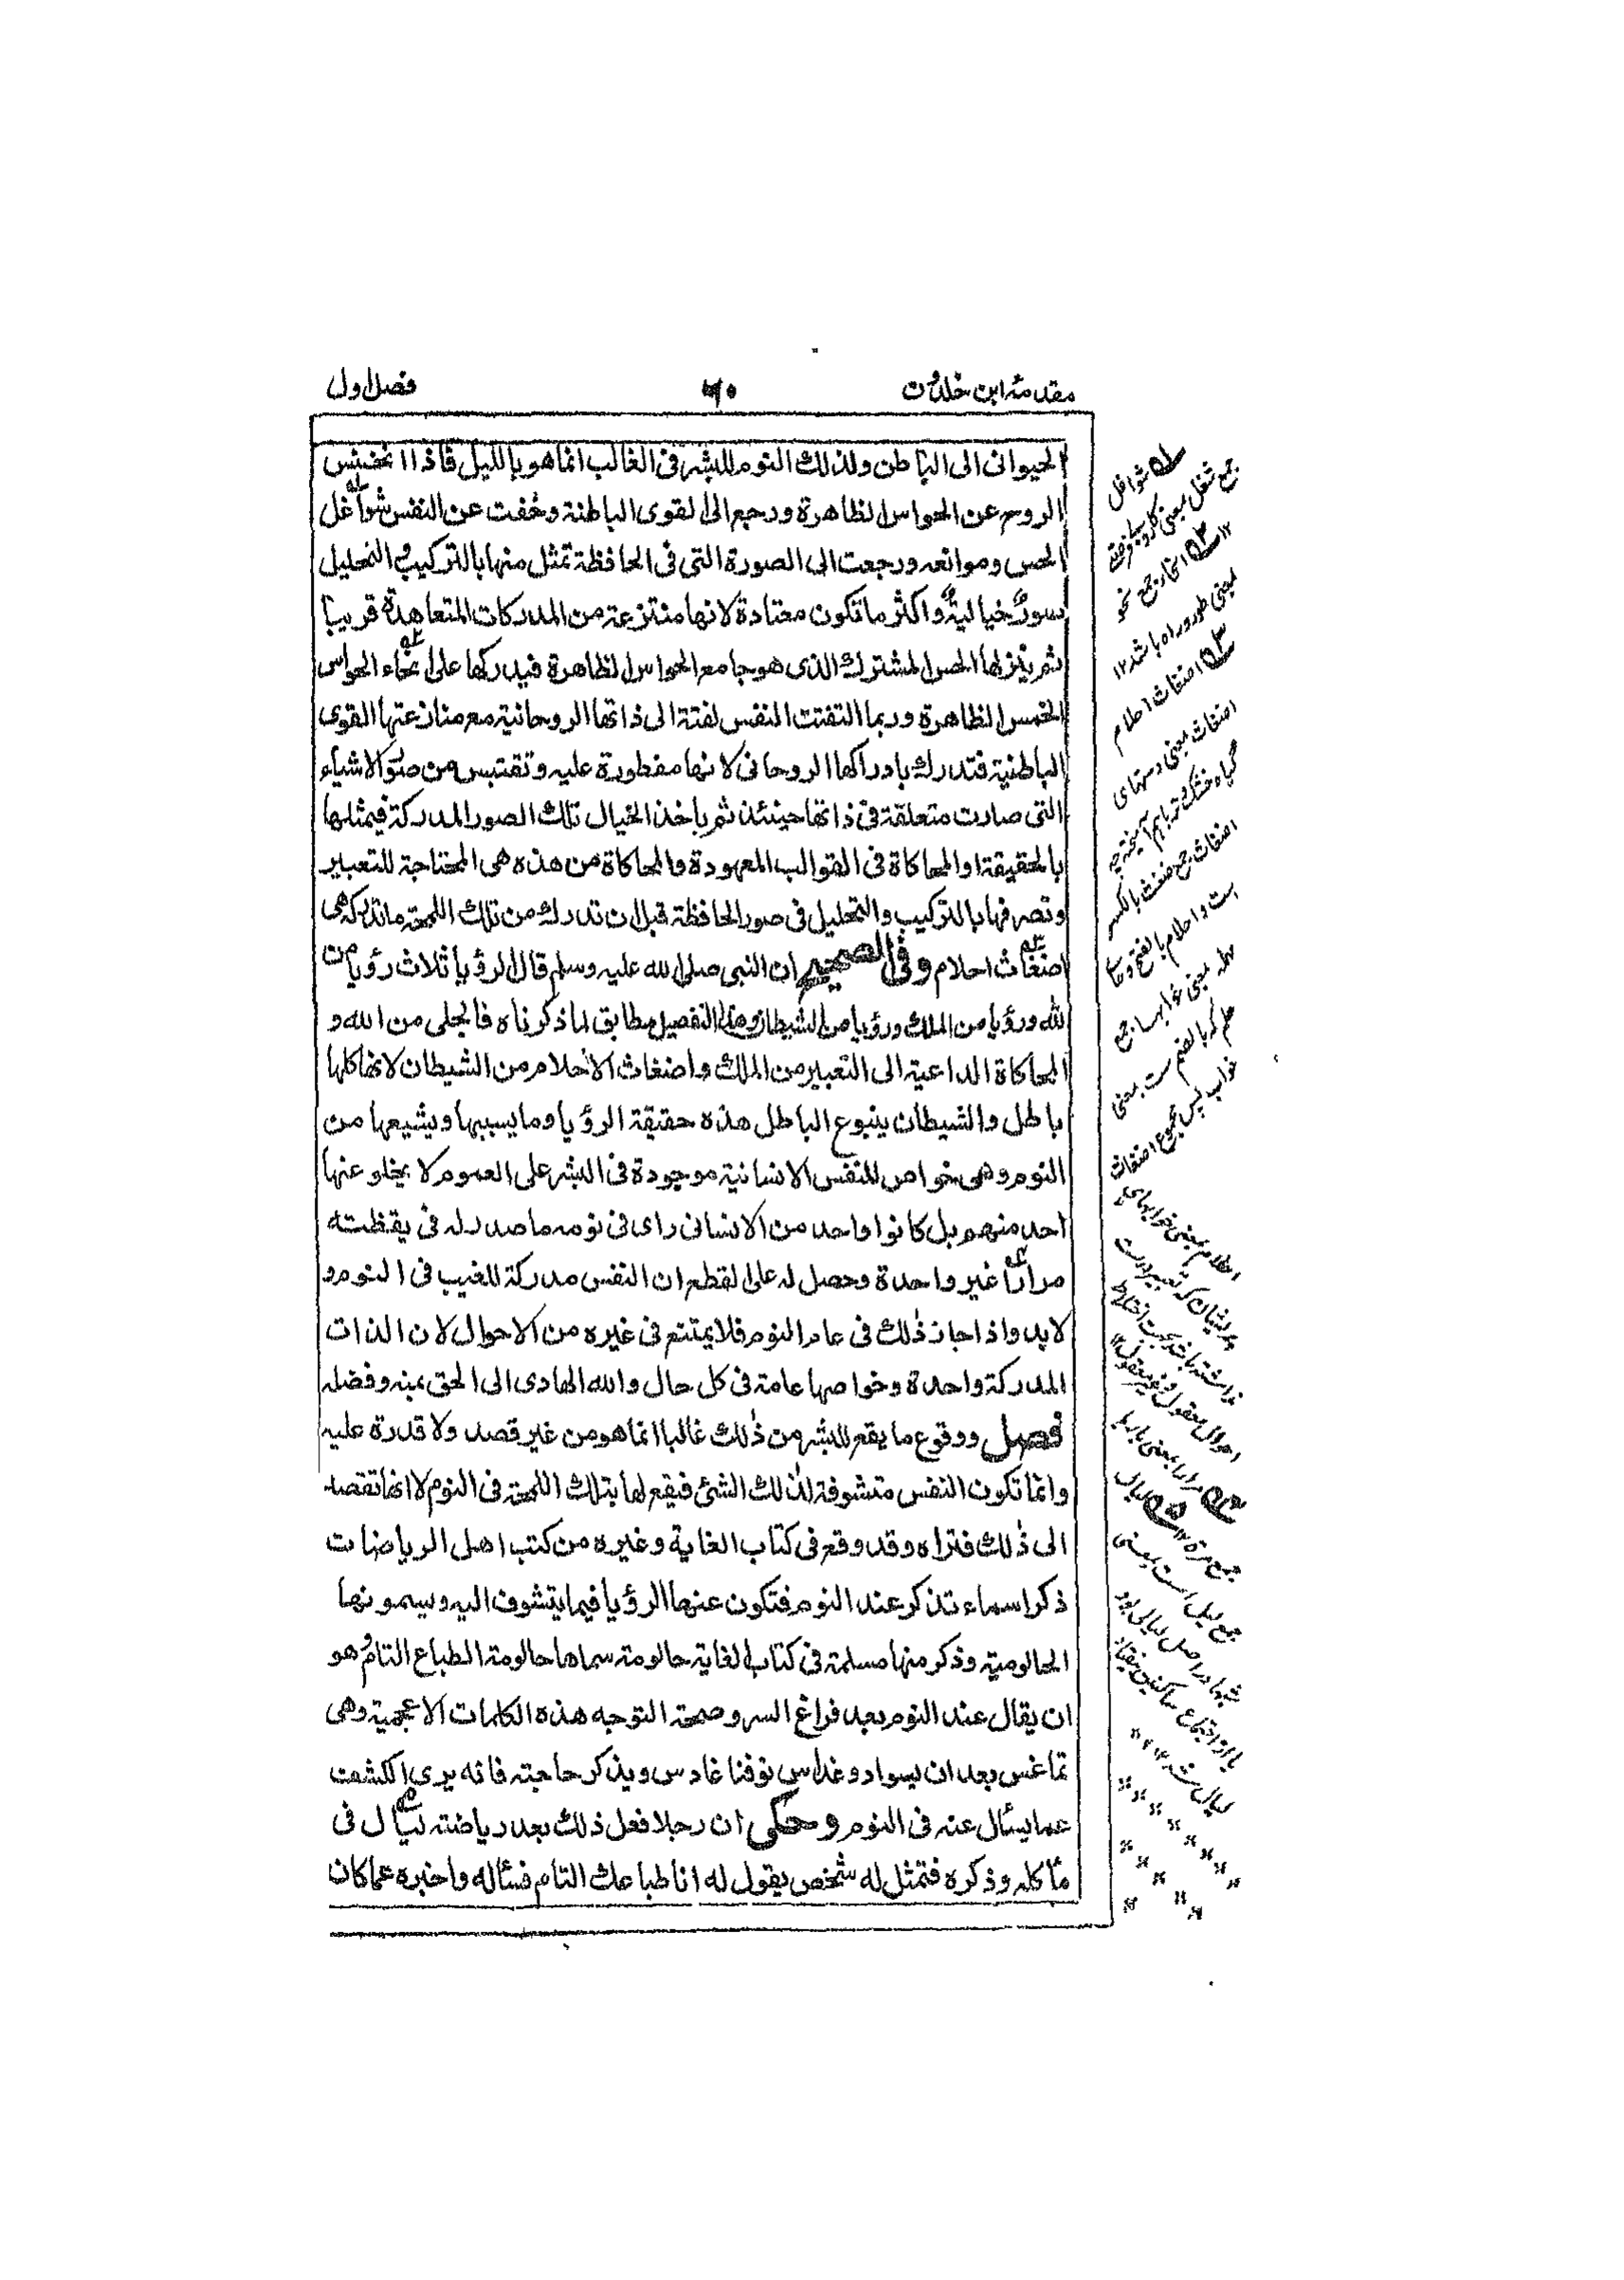 مقدمۂ ابن خلدون
٦٠
فصل اول
الحیوانی الی الباطن ولذلك النوم للبشر فی الغالب انما هو باللیل فاذا انخنس
الروح عن الحواس الظاهرة ورجع الی القوی الباطنة وخفت عن النفس شواغل
الحس وموانعه ورجعت الی الصورة التی فی الحافظة تمثل منها بالترکیب والتحلیل
سورٌ خیالیةٌ واکثر ما تکون معتادة لانها منتزعة من المدرکات المتعاهدة قریبا
ثم ینزلها الحس المشترك الذی هو جامع الحواس الظاهرة فیدرکها علی انحاء الحواس
الخمس الظاهرة وربما التفتت النفس لفتة الی ذاتها الروحانیة مع منازعتها القوی
الباطنیة فتدرك بادراکها الروحانی لانها مفطورة علیه وتقتبس من صور الاشیاء
التی صارت متعلقة فی ذاتها حینئذ ثم یاخذ الخیال تلك الصور المدرکة فیمثلها
بالحقیقة او المحاکاة فی القوالب المعهودة والمحاکاة من هذه هی المحتاجة للتعبیر
وتصرفها بالترکیب والتحلیل فی صور الحافظة قبل ان تدرك من تلك اللمحة ماتدرکه هی
اضغاث احلام وفی الصحیح ان النبی صلی الله علیه وسلم قال الرؤیا ثلاث رؤیا من
لله ورؤیا من الملك ورؤیا من الشیطان وهذا التفصیل مطابق لما ذکرناه فالجلی من الله و
المحاکاة الداعیة الی التعبیر من الملك واضغاث الاحلام من الشیطان لانها کلها
باطل والشیطان ینبوع الباطل هذه حقیقة الرؤیا وما یسببها ویشیعها من
النوم وهی خواص للنفس الانسانیة موجودة فی البشر علی العموم لا یخلو عنها
احد منهم بل کانوا واحد من الانسانی رای فی نومه ما صدر له فی یقظته
مراراً غیر واحدة وحصل له علی القطع ان النفس مدرکة للغیب فی النوم و
لابد واذا جاز ذٰلك فی عالم النوم فلا یمتنع فی غیره من الاحوال لان الذات
المدرکة واحدة وخواصها عامة فی کل حال والله الهادی الی الحق بمنه وفضله
فصل ووقوع ما یقع للبشر من ذٰلك غالبا انما هو من غیر قصد ولا قدرة علیه
وانما تکون النفس متشوفة لذٰلك الشیٔ فیقع لها بتلك اللمحة فی النوم لا انها تقصد
الی ذٰلك فتراه وقد وقع فی کتاب الغایة وغیره من کتب اهل الریاضات
ذکر اسماء تذکر عند النوم فتکون عنها الرؤیا فیما یتشوف الیه ویسمونها
الحالومیة وذکر منها مسلمة فی کتاب الغایة حالومة سماها حالومة الطباع التام وهو
ان یقال عند النوم بعد فراغ السر وصحة التوجه هذه الکلمات الاعجمیة وهی
تماغس بعد ان یسواد وغداس نوفنا غادس ویذکر حاجته فانه یری الکشف
عما یسأل عنه فی النوم وحکی ان رجلا فعل ذلك بعد ریاضته لیال فی
مأکله وذکره فتمثل له شخص یقول له انا طباعك التام فسأله واخبره عما کان
شواغل
جمع شغل بمعنی
انحاء جمع نحو
بمعنی طور و راه باشد ۱۲
اضغاث احلام
اضغاث بمعنی دستهای
گیاه خشک و تر باهم آمیخته
اضغاث جمع ضغث بالکسر
است و احلام بالفتح و حا
مهمله بمعنی خوابها جمع
حلم که بالضم ست بمعنی
خواب پس مجموع اضغاث
احلام بمعنی خوابهای
پریشان که تعبیر درست
احوال معقول و غیر معقول ۱۲
مرارا بمعنی بارها
جمع مرة ۱۲ لیال
جمع لیل است بمعنی
شبها در اصل لیالی بود
لیال شد ۱۲